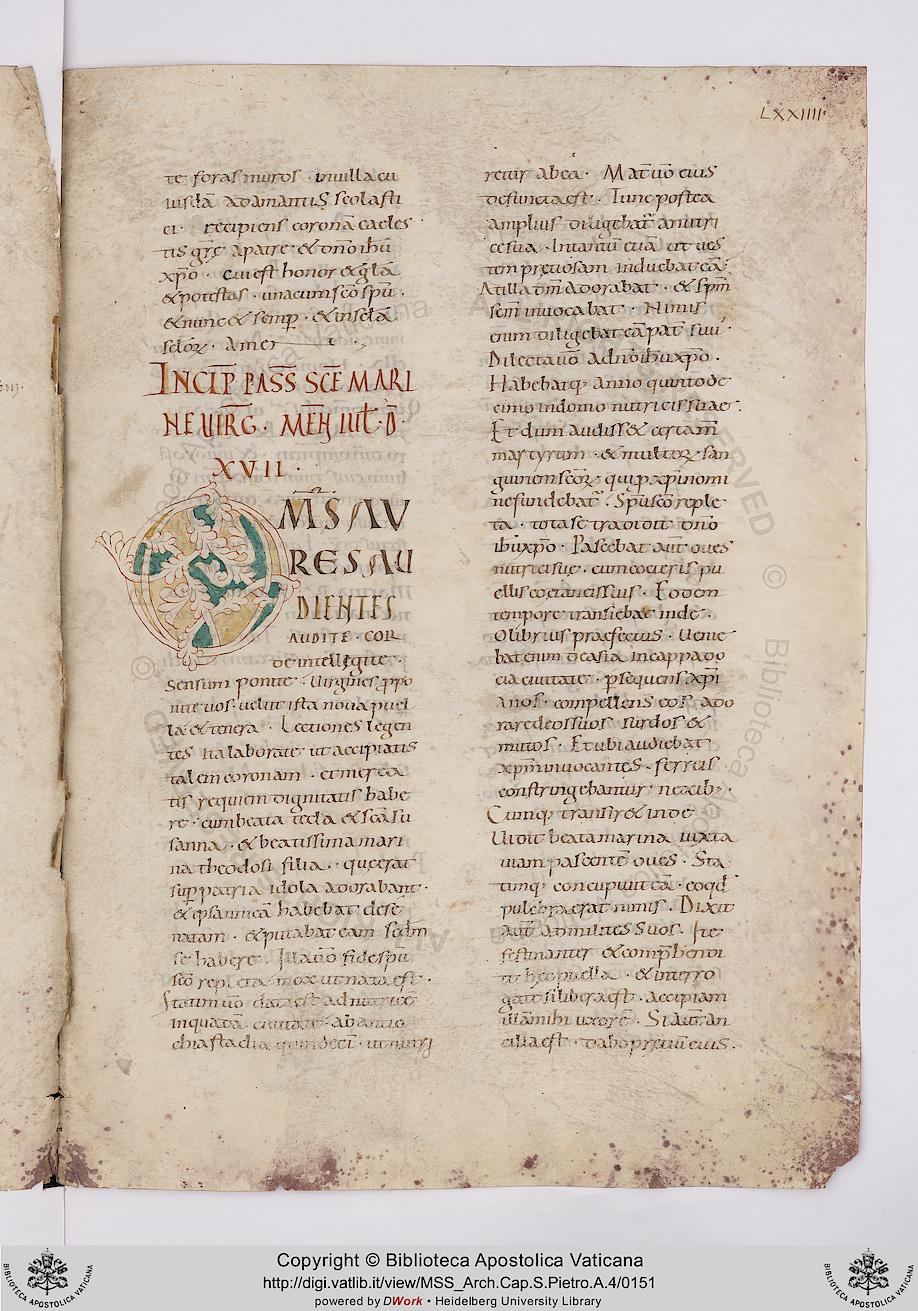 LXXIIII·
te foras muros · in uilla cu
iusdā adamantis scolasti
ci · recipiens coronā caeles
tis gr̄e a patre & dn̄o ih̄u
xp̄o · cui est honor & gl̄a
& potestas · una cum sc̄o sp̄u ·
& nunc & semp̄ · & in sclā
sclor̄ · Amen
INCIP̄ PASS̄ SCĒ MARI
NE UIRḠ · MEN̄ IUL̄ · D̄ ·
XVII ·
OMS̄ AU
RES AU
DIENTES
AUDITE · COR
de intellegite ·
Sensum ponite · Uirgines p̄po
nite uos · uelut ista noua puel
la & tenera · Lectiones legen
tes ita laborate ut accipiatis
talem coronam · et mer cā
tis requiem dignitatis habe
re · cum beata tecla & scā su
sanna · & beatissima mari
na theodosi filia · que erat
sup̄ patria idola adorabant ·
& ipsa unicā habebat dese
natam · & putabat eam scdm̄
se habere · Illa uō fide sp̄u
sc̄o repleta mox ut nata est ·
statim uō data est ad nutricē
in quadā ciuitate · ab antio
chia stadia quindecī · ut nutri
retur ab ea · Mat̄ uō eius
defuncta est · Tunc postea
amplius diligebat̄ a nutri
ce sua · In tantū etiā ut ues
tem pretiosam induebat eā ·
At illa dm̄ adorabat · & sp̄m
scm̄ inuocabat · Nimis
enim diligebat eā pat̄ suus ·
Dilecta uō a dn̄o ih̄u xp̄o ·
Habebatq; anno quinto de
cimo in domo nutricis suae ·
Et dum audiss& certam̄
martyrum · & multor̄ san
guinem scor̄ · qui p̄ xp̄i nomi
ne fundebat̄ · Sp̄u sc̄o reple
ta · tota se tradidit dn̄o
ih̄u xp̄o · Pascebat aut̄ oues
nutricis suę · cum ceteris pu
ellis coetaneis suis · Eodem
tempore transiebat inde ·
Olibrius praefectus · Uenie
bat enim de asia in cappado
cia ciuitate · p̄sequens xp̄i
anos · compellens eos ado
rare deos suos surdos &
mutos · Et ubi audiebat
xp̄m inuocantes · ferreis
constringebantur nexib; ·
Cumq; transir& inde
Uidit beata marina iuxta
uiam pascentē oues · Sta
timq; concupiuit eā · eo qd̄
pulchra erat nimis · Dixit
aut̄ ad milites suos · Ite
festinanter & comp̄hendi
te hec puella · & interro
gate si libera est · accipiam
illā mihi uxorē · Si aut̄ an
cilla est · dabo pretiū eius ·
Copyright © Biblioteca Apostolica Vaticana
http://digi.vatlib.it/view/MSS_Arch.Cap.S.Pietro.A.4/0151
powered by DWork • Heidelberg University Library